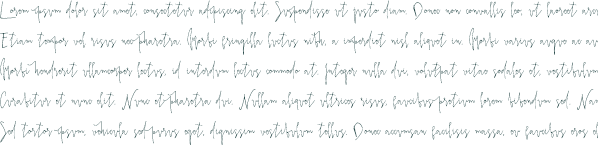 Lorem ipsum dolor sit amet, consectetur adipiscing elit. Suspendisse ut justo diam. Donec non convallis leo, ut laoreet arcu
Etiam tempor vel risus nec pharetra. Morbi fringilla luctus nibh, a imperdiet nisl aliquet in. Morbi varius arcu ac au
Morbi hendrerit ullamcorper lectus, id interdum lectus commodo at. Integer nulla dui, volutpat vitae sodales et, vestibulum
Curabitur et nunc elit. Nunc et pharetra dui. Nullam aliquet ultrices risus, faucibus pretium lorem bibendum sed. Nam
Sed tortor ipsum, vehicula sed purus eget, dignissim vestibulum tellus. Donec accumsan facilisis massa, eu faucibus eros el